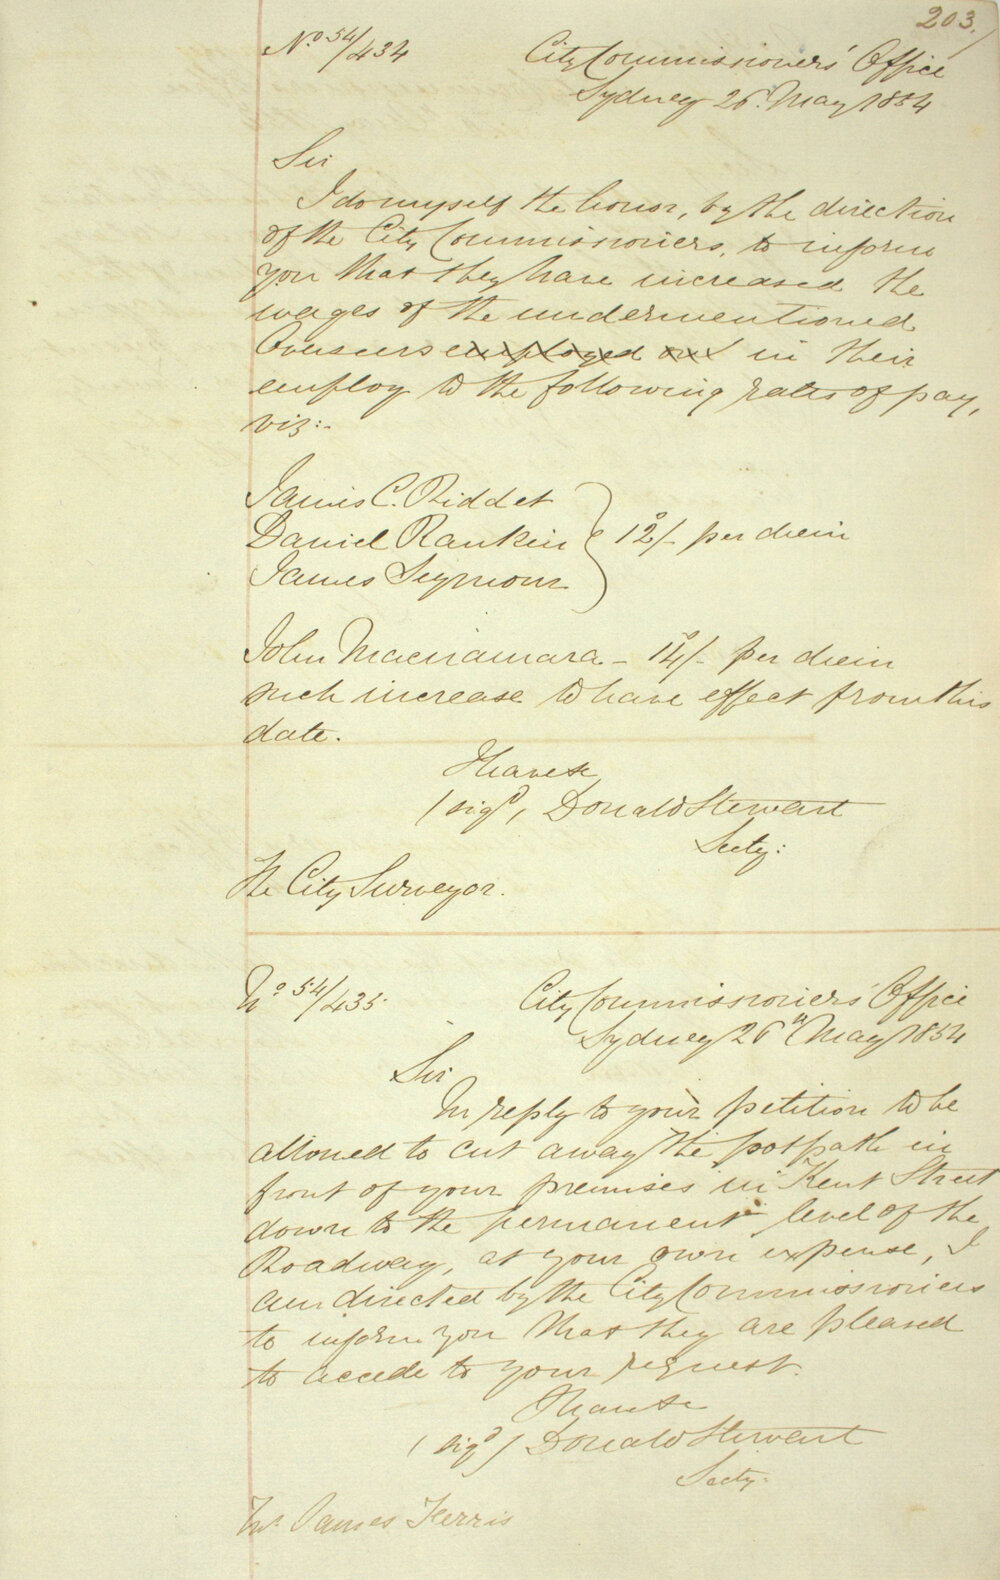 203.
No 54/434
City Commissioners' Office
Sydney 26. May 1854
Sir
I do myself the honor, by the direction
of the City Commissioners, to inform
you that they have increased the
wages of the undermentioned
Overseers employed out in their
employ to the following rates of pay,
viz:-
James C. Riddet
Daniel Rankin } 12/- per diem
James Seymour
John Macnamara - 14/- per diem
such increase to have effect from this
date.
I have &c
(sigd) Donald Stewart
Secty:
The City Surveyor.
No 54/435
City Commissioners' Office
Sydney 26th May 1854
Sir
In reply to your petition to be
allowed to cut away the footpath in
front of your premises in Kent Street
down to the permanent level of the
Roadway, at your own expense, I
am directed by the City Commissioners
to inform you that they are pleased
to accede to your request.
I have &c
(sigd) Donald Stewart
Secty:
Mr James Ferris